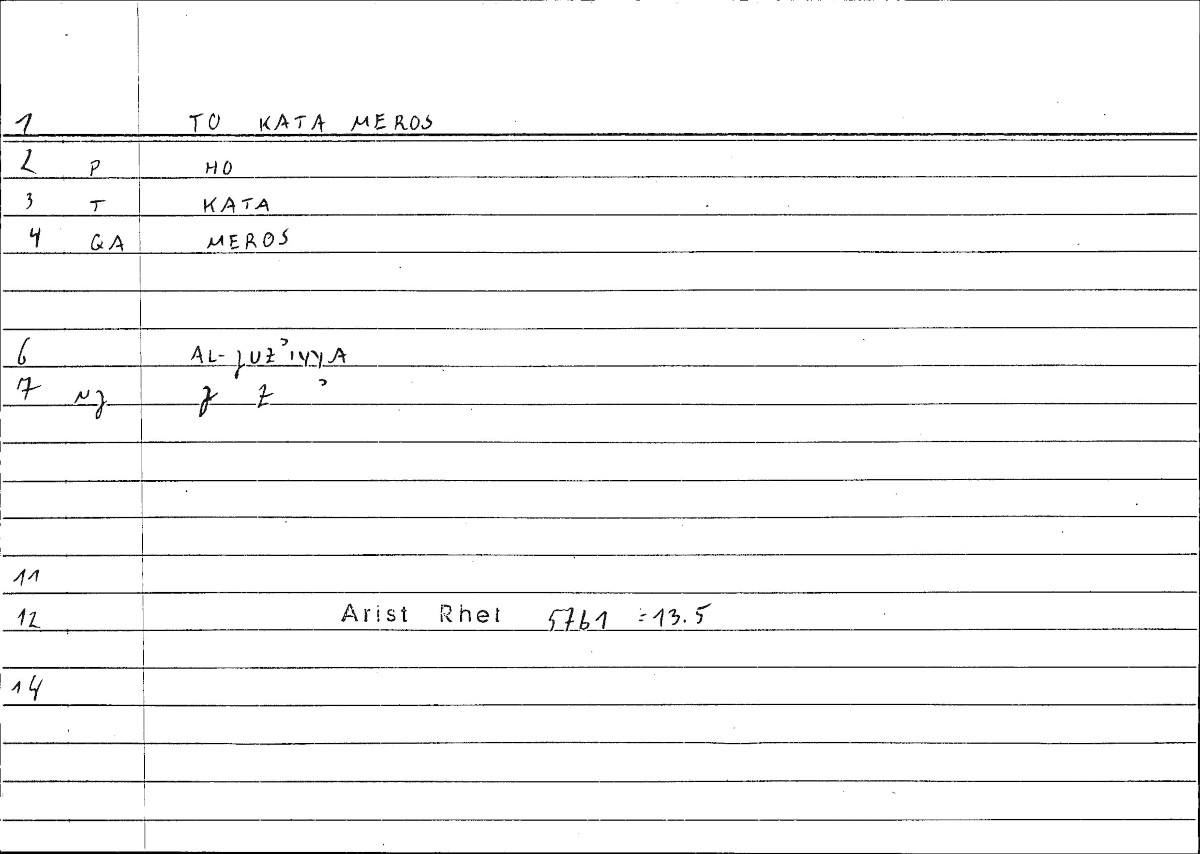 1 TO KATA MEROS
2 P HO
3 T KATA
4 QA MEROS
6 AL-JUZʾIYYA
7 NJ J Z ʾ
11
12 Arist Rhet 57b1 =13.5
14